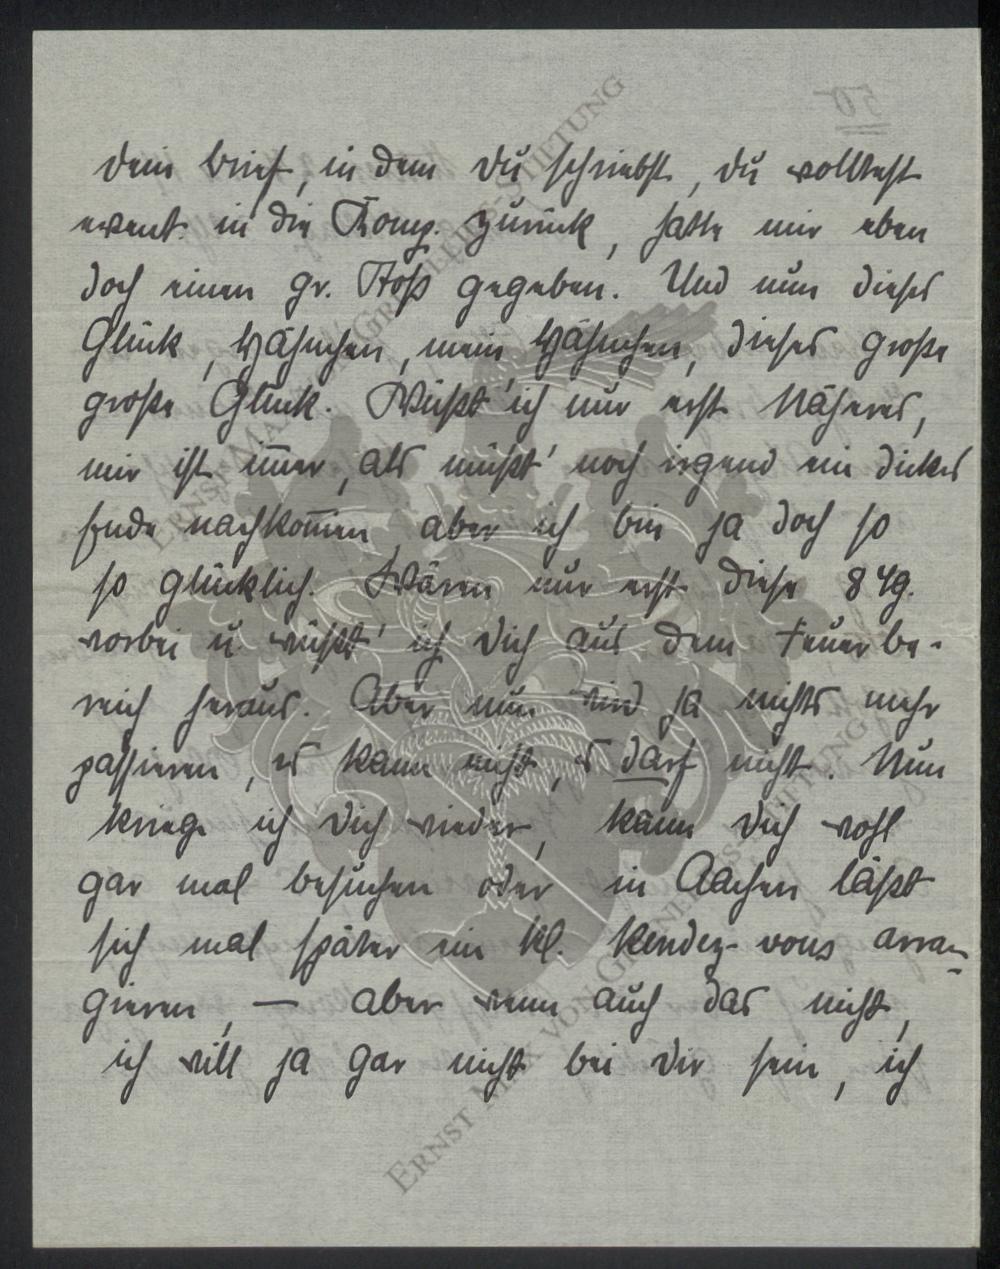 Dein Brief, in dem Du schriebst, Du wolltest
event. in die Komp. zurück, hatte mir eben
doch einen gr. Stoß gegeben. Und nun dieses
Glück, Hähnchen, mein Hähnchen, dieses große
große Glück. Wüßt' ich nur erst Näheres,
mir ist im̅er, als müßt' noch irgend ein dickes
Ende nachkom̅en, aber ich bin ja doch so
so glücklich. Wären nur erst diese 8 Tg.
vorbei u. wüßt' ich Dich aus dem Feuerbe-
reich heraus. Aber nun wird ja nichts mehr
passieren, es kann nicht, es darf nicht. Nun
kriege ich Dich wieder, kann Dich wohl
gar mal besuchen oder in Aachen läßt
sich mal später ein kl. Rendez-vous arran-
gieren, — aber wenn auch das nicht,
ich will ja gar nicht bei Dir sein, ich
ERNST MAX VON GRUNELIUS-STIFTUNG
ERNST MAX VON GRUNELIUS-STIFTUNG
50